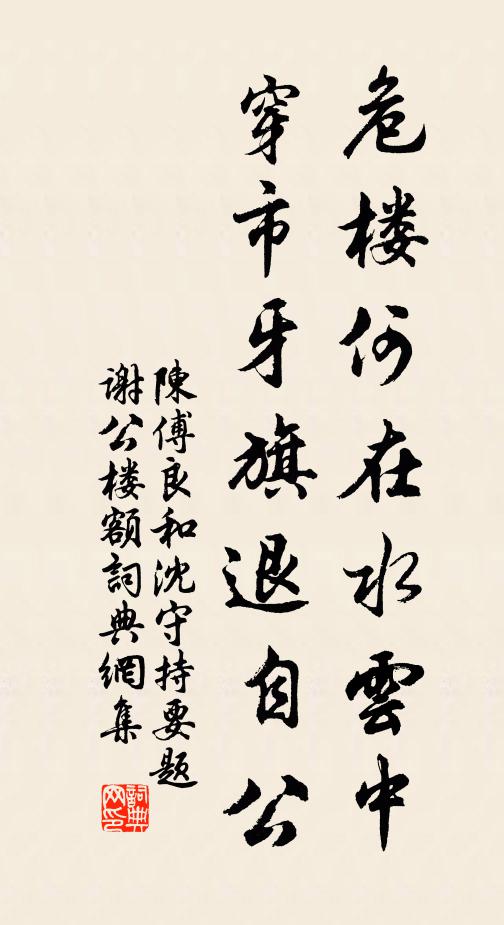 危楼何在水雲中
穿市牙旗退自公
陳傅良和沈守持要題
谢公楼額詞典網集
詞典网印